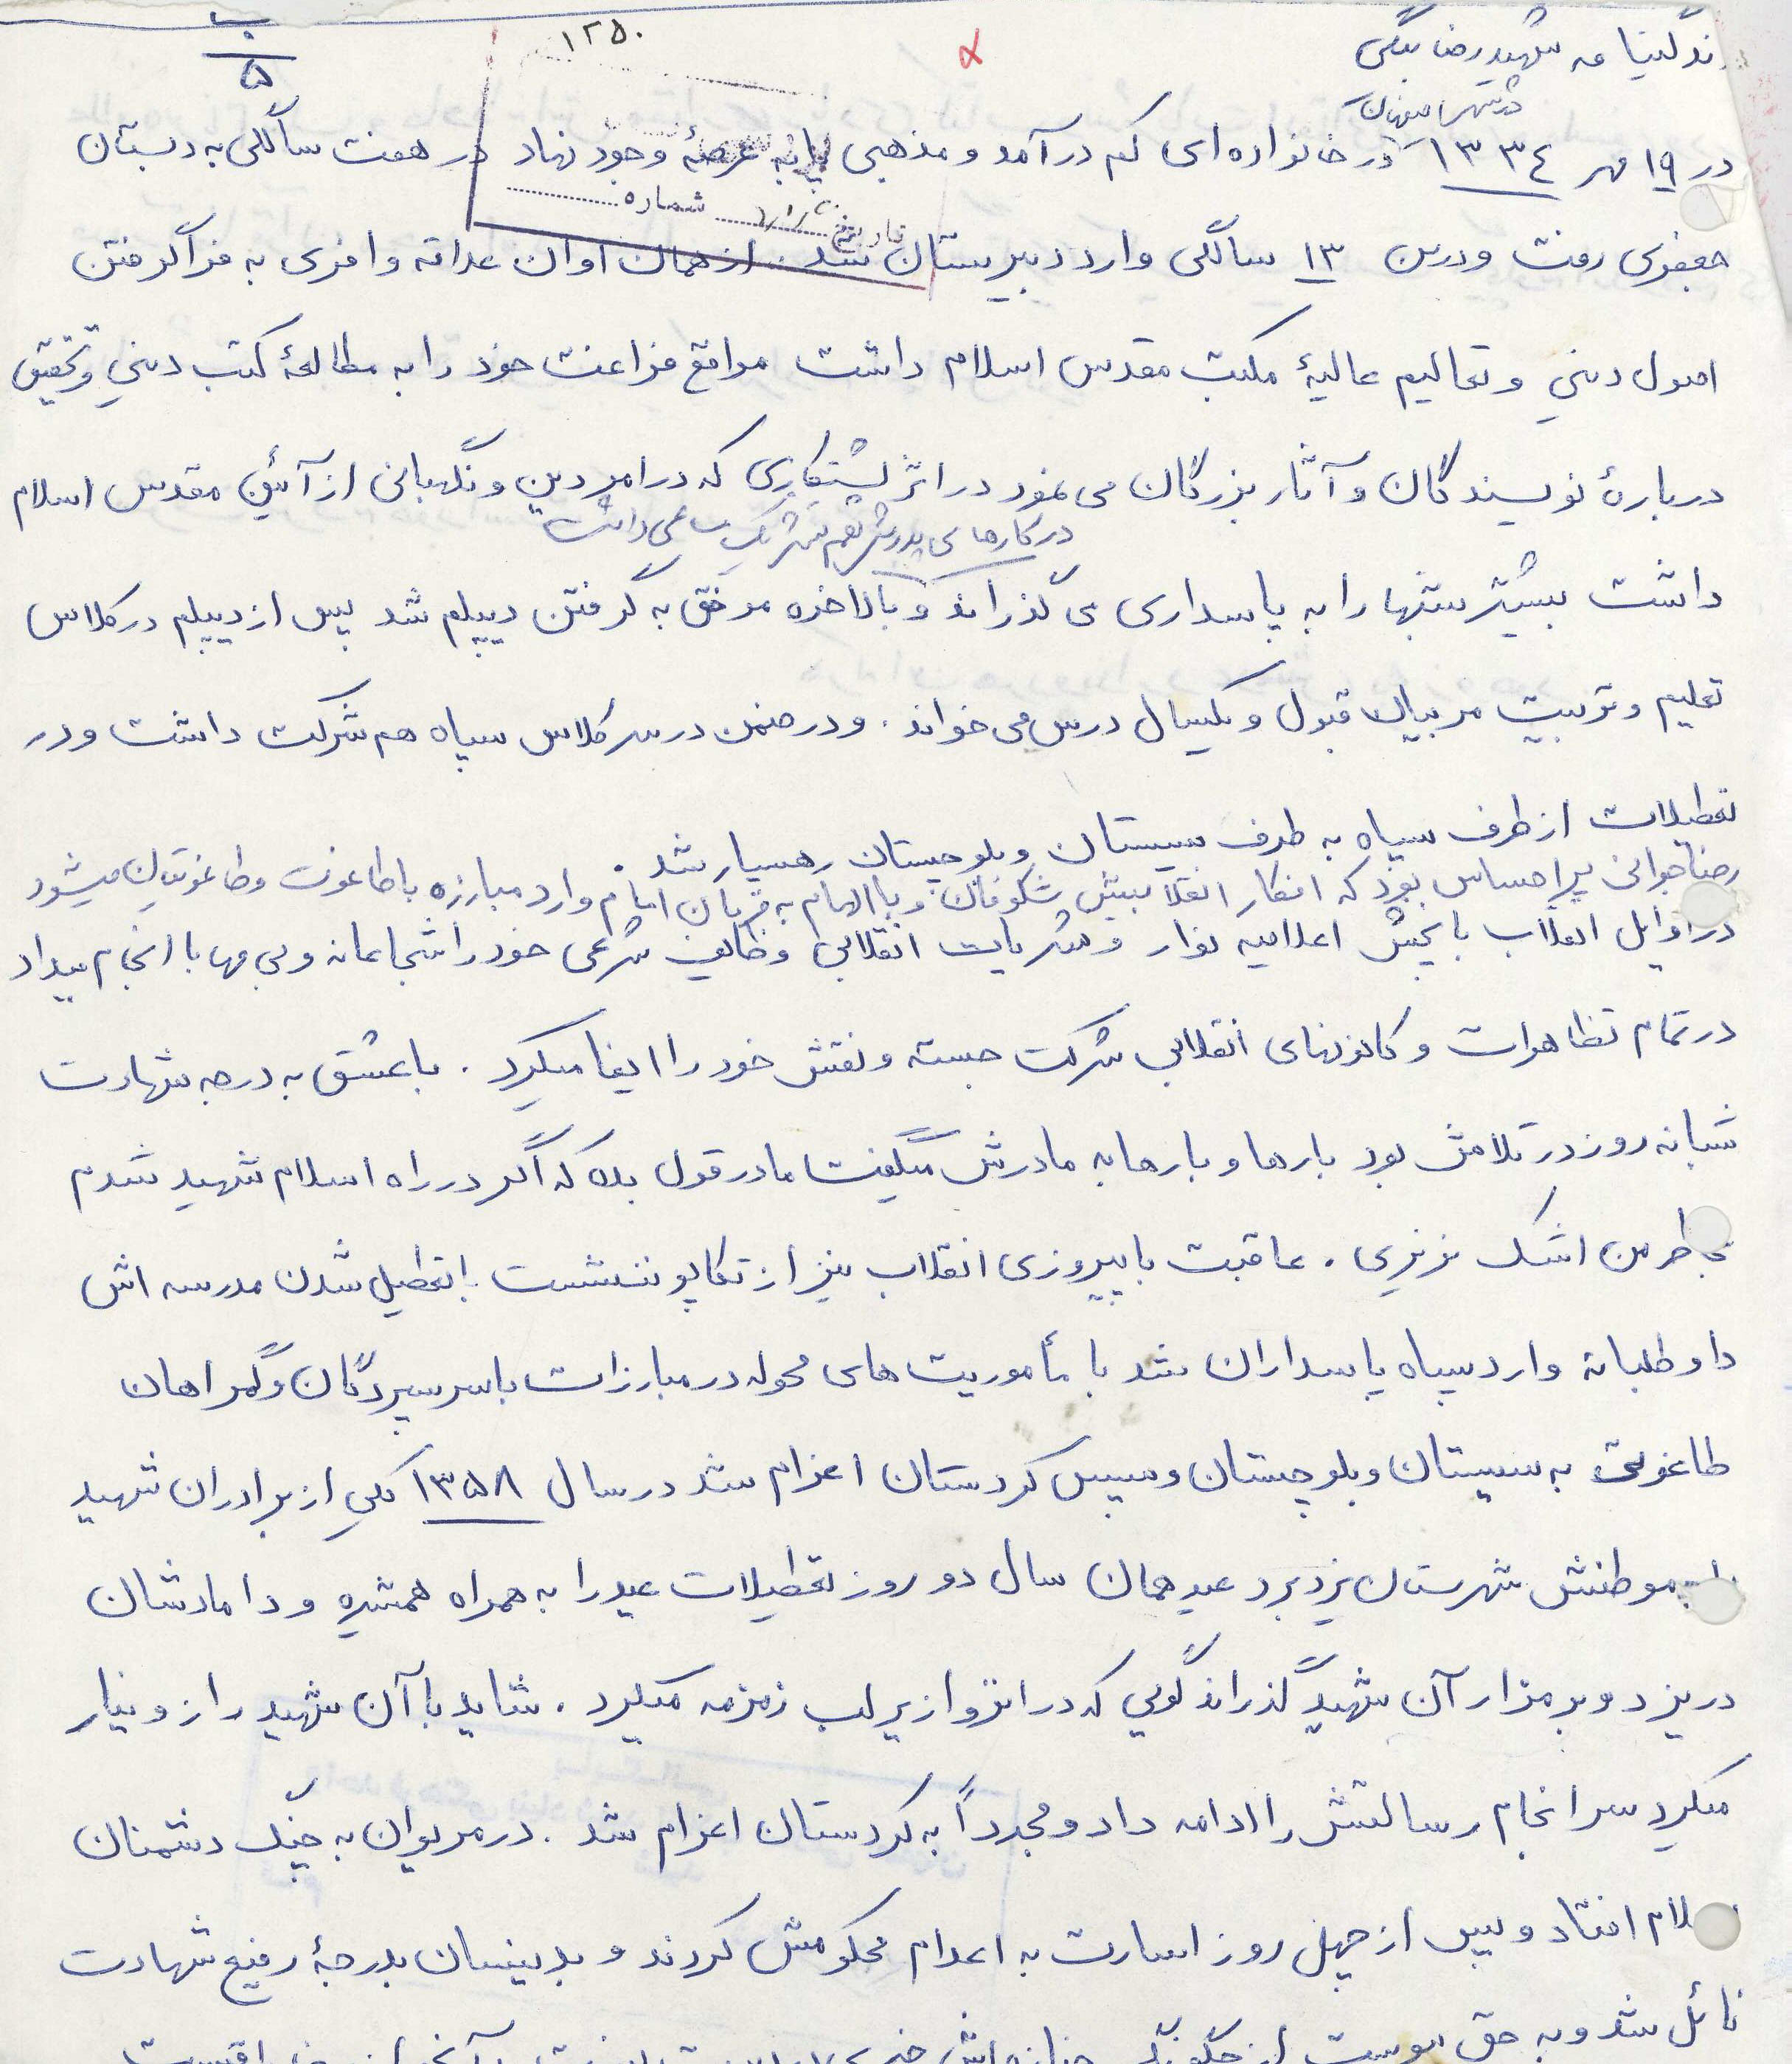 ب
۵
۱۲۵۰
زندگینامه شهید رضا بیگی
در شهر اصفهان
در ۱۹ مهر ۱۳۳۴ در خانواده‌ای کم درآمد و مذهبی پا به عرصهٔ وجود نهاد در هفت سالگی به دبستان
تاریخ شماره
جعفری رفت و در سن ۱۳ سالگی وارد دبیرستان شد. از همان اوان علاقه وافری به فراگرفتن
اصول دینی و تعالیم عالیهٔ مکتب مقدس اسلام داشت مواقع فراغت خود را به مطالعهٔ کتب دینی و تحقیق
دربارهٔ نویسندگان و آثار بزرگان می نمود در اثر پشتکاری که در امر دین و نگهبانی از آئین مقدس اسلام
در کارهای پدرش هم شرکت می داشت
داشت بیشتر شبها را به پاسداری می گذراند و بالاخره موفق به گرفتن دیپلم شد پس از دیپلم در کلاس
تعلیم و تربیت مربیان قبول و یکسال درس می خواند. و در ضمن در سر کلاس سپاه هم شرکت داشت و در
تعطیلات از طرف سپاه به طرف سیستان و بلوچستان رهسپار شد.
رضا جوانی پر احساس بود که افکار انقلابیش شکوفان و با الهام به فرمان امام وارد مبارزه با طاغوت و طاغوتیان میشود
در اوایل انقلاب با پخش اعلامیه نوار و نشریات انقلابی وظایف شرعی خود را شجاعانه و بی مهابا انجام میداد
در تمام تظاهرات و کانونهای انقلابی شرکت جسته و نقش خود را ایفا میکرد. با عشق به درجه شهادت
شبانه روز در تلاش بود بارها و بارها به مادرش میگفت مادر قول بده که اگر در راه اسلام شهید شدم
بخاطر من اشک نریزی. عاقبت با پیروزی انقلاب نیز از تکاپو ننشست با تعطیل شدن مدرسه اش
داوطلبانه وارد سپاه پاسداران شد با مأموریت های محوله در مبارزات با سرسپردگان و گمراهان
طاغوتی به سیستان و بلوچستان و سپس کردستان اعزام شد در سال ۱۳۵۸ یکی از برادران شهید
بموطنش شهرستان یزد برد عید همان سال دو روز تعطیلات عید را به همراه همشیره و دامادشان
در یزد و بر مزار آن شهید گذراند گویی که در انزوا زیر لب زمزمه میکرد. شاید با آن شهید راز و نیاز
میکرد سرانجام رسالتش را ادامه داد و مجدداً به کردستان اعزام شد. در مریوان به چنگ دشمنان
اسلام افتاد و پس از چهل روز اسارت به اعدام محکومش کردند و بدینسان بدرجهٔ رفیع شهادت
نائل شد و به حق پیوست از چگونگی